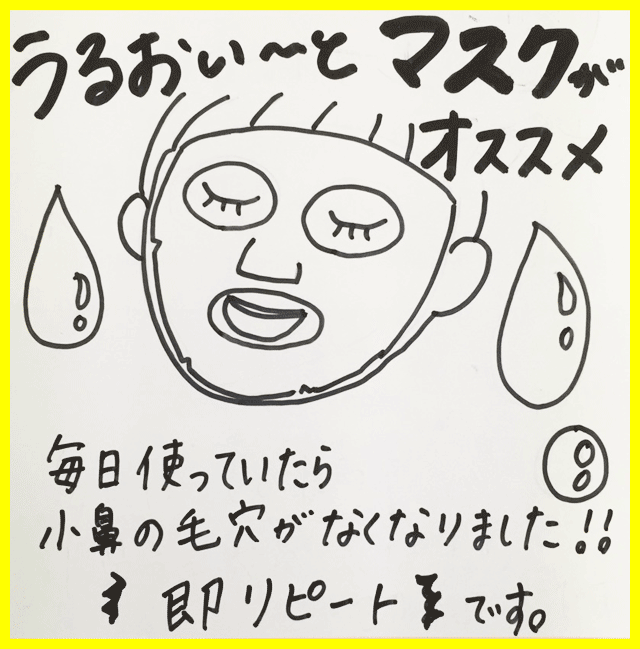 うるおい〜と マスクが
オススメ
毎日使っていたら
小鼻の毛穴がなくなりました!!
即リピートです。